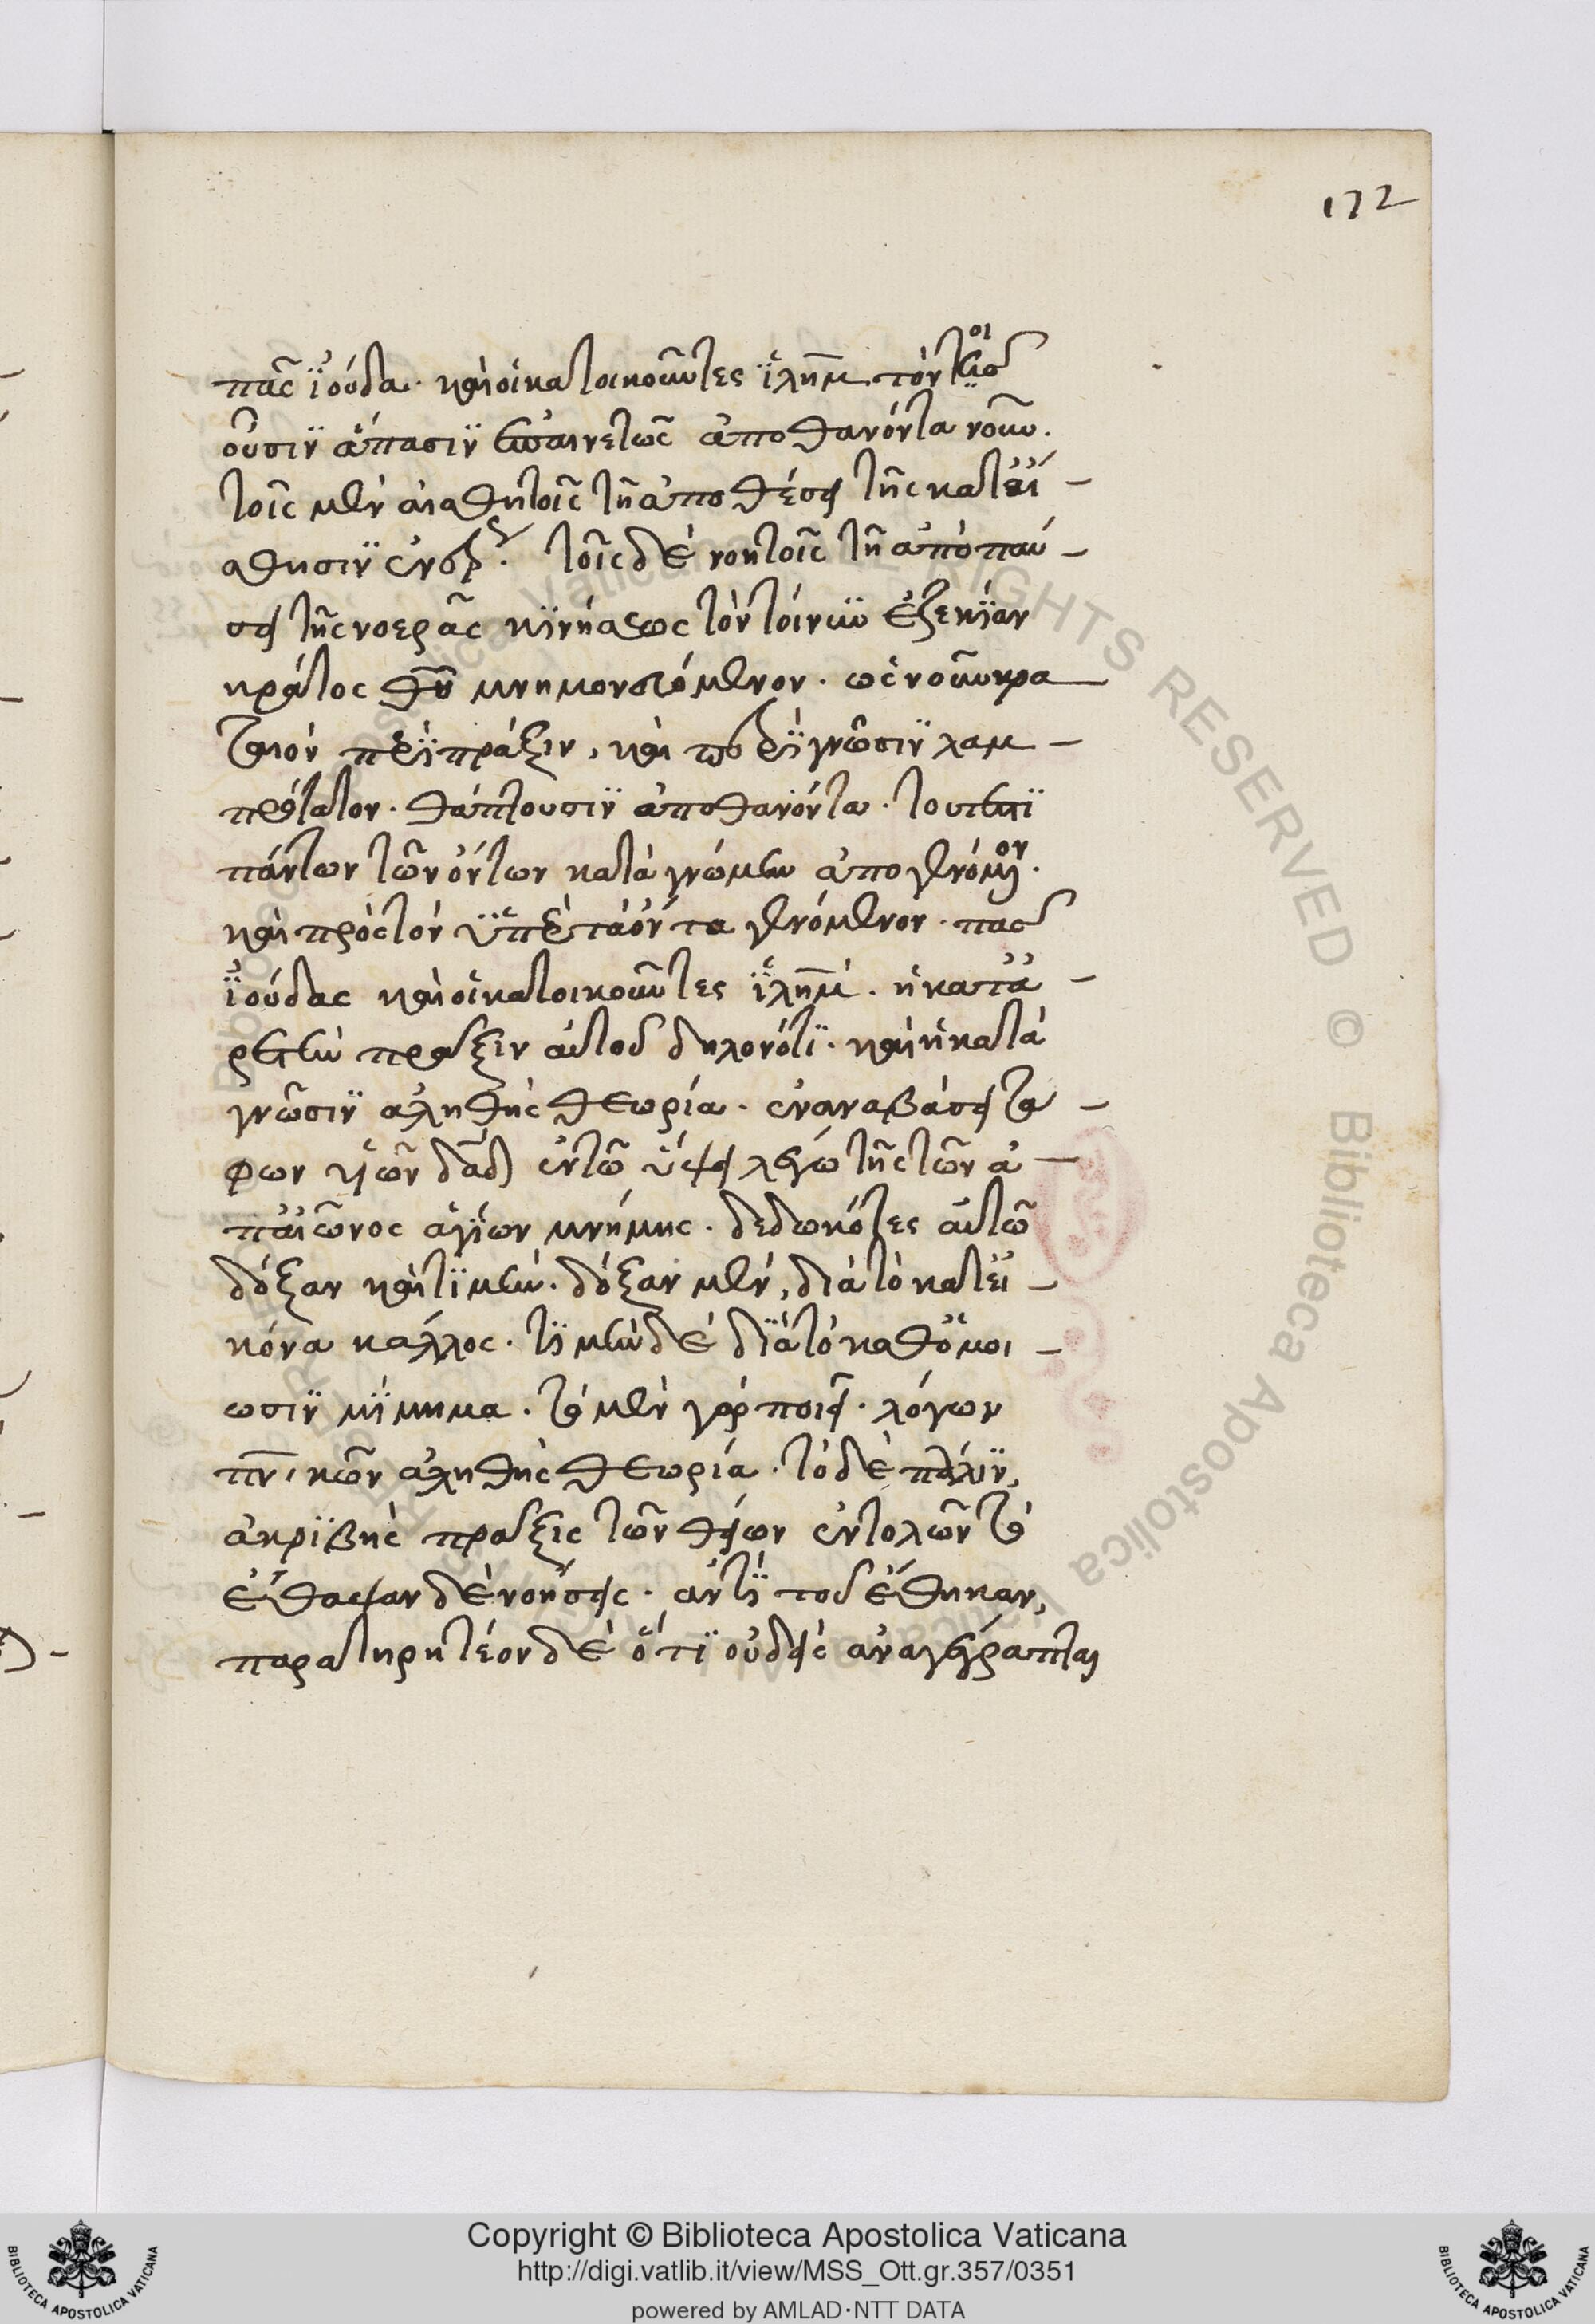 172
πᾶς ἰούδα· καὶ οἱ κατοικοῦντες ἱλημ τὸν τοιοῦ
οὖσιν ἅπασιν ἐπαινετῶς ἀποθανόντα νοῦν.
τοῖς μὲν αἰσθητοῖς τῇ ἀποθέσει τῆς κατ' αἴ-
σθησιν ἐνεργ. τοῖς δὲ νοητοῖς τῇ ἀποπαύ-
σει τῆς νοερᾶς κινήσεως τὸν τοίνυν ἐζεκίαν
κράτος θυ μνημονευόμενον. ὡς νοῦν κρα
ταιὸν περὶ πρᾶξιν, καὶ περὶ γνῶσιν λαμ-
πρότατον. θάπτουσιν ἀποθανόντα. τουτέστι
πάντων τῶν ὄντων κατὰ γνώμην ἀπογενόμενον.
καὶ πρὸς τὸν ὑπὲρ τὰ ὄντα γενόμενον. πᾶς
ἰούδας καὶ οἱ κατοικοῦντες ἱλημ. ἡ κατὰ ἀ-
ρετὴν πρᾶξιν αὐτοῦ δηλονότι. καὶ ἡ κατὰ
γνῶσιν ἀληθὴς θεωρία. ἐν ἀναβάσει τά-
φων υἱῶν δαδ ἐν τῶ ὕψει λέγω τῆς τῶν ἀ-
π' αἰῶνος ἁγίων μνήμης. δεδωκότες αὐτῶ
δόξαν καὶ τιμήν. δόξαν μὲν, διὰ τὸ κατ' εἰ-
κόνα κάλλος. τιμὴν δὲ διὰ τὸ καθ' ὁμοί-
ωσιν μίμημα. τὸ μὲν γὰρ ποιεῖ. λόγων
πνικῶν ἀληθὴς θεωρία. τὸ δὲ πάλιν,
ἀκριβὴς πρᾶξις τῶν θείων ἐντολῶν τὸ
ἔθαψαν δὲ νοήσεις. ἀντὶ τοῦ ἔθηκαν,
παρατηρητέον δὲ ὅτι οὐδεὶς ἀναγέγραπται
Copyright © Biblioteca Apostolica Vaticana
http://digi.vatlib.it/view/MSS_Ott.gr.357/0351
powered by AMLAD·NTT DATA